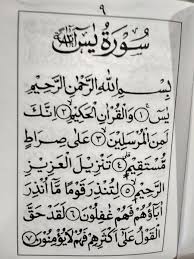 ٩
سُورَةُ يٰسٓ
بِسْمِ اللهِ الرَّحْمٰنِ الرَّحِيْمِ
يٰسٓ ﴿١﴾ وَالْقُرْاٰنِ الْحَكِيْمِ ﴿٢﴾ اِنَّكَ
لَمِنَ الْمُرْسَلِيْنَ ﴿٣﴾ عَلٰى صِرَاطٍ
مُّسْتَقِيْمٍ ﴿٤﴾ تَنْزِيْلَ الْعَزِيْزِ
الرَّحِيْمِ ﴿٥﴾ لِتُنْذِرَ قَوْمًا مَّآ اُنْذِرَ
اٰبَآؤُهُمْ فَهُمْ غٰفِلُوْنَ ﴿٦﴾ لَقَدْ حَقَّ
الْقَوْلُ عَلٰٓى اَكْثَرِهِمْ فَهُمْ لَا يُؤْمِنُوْنَ ﴿٧﴾